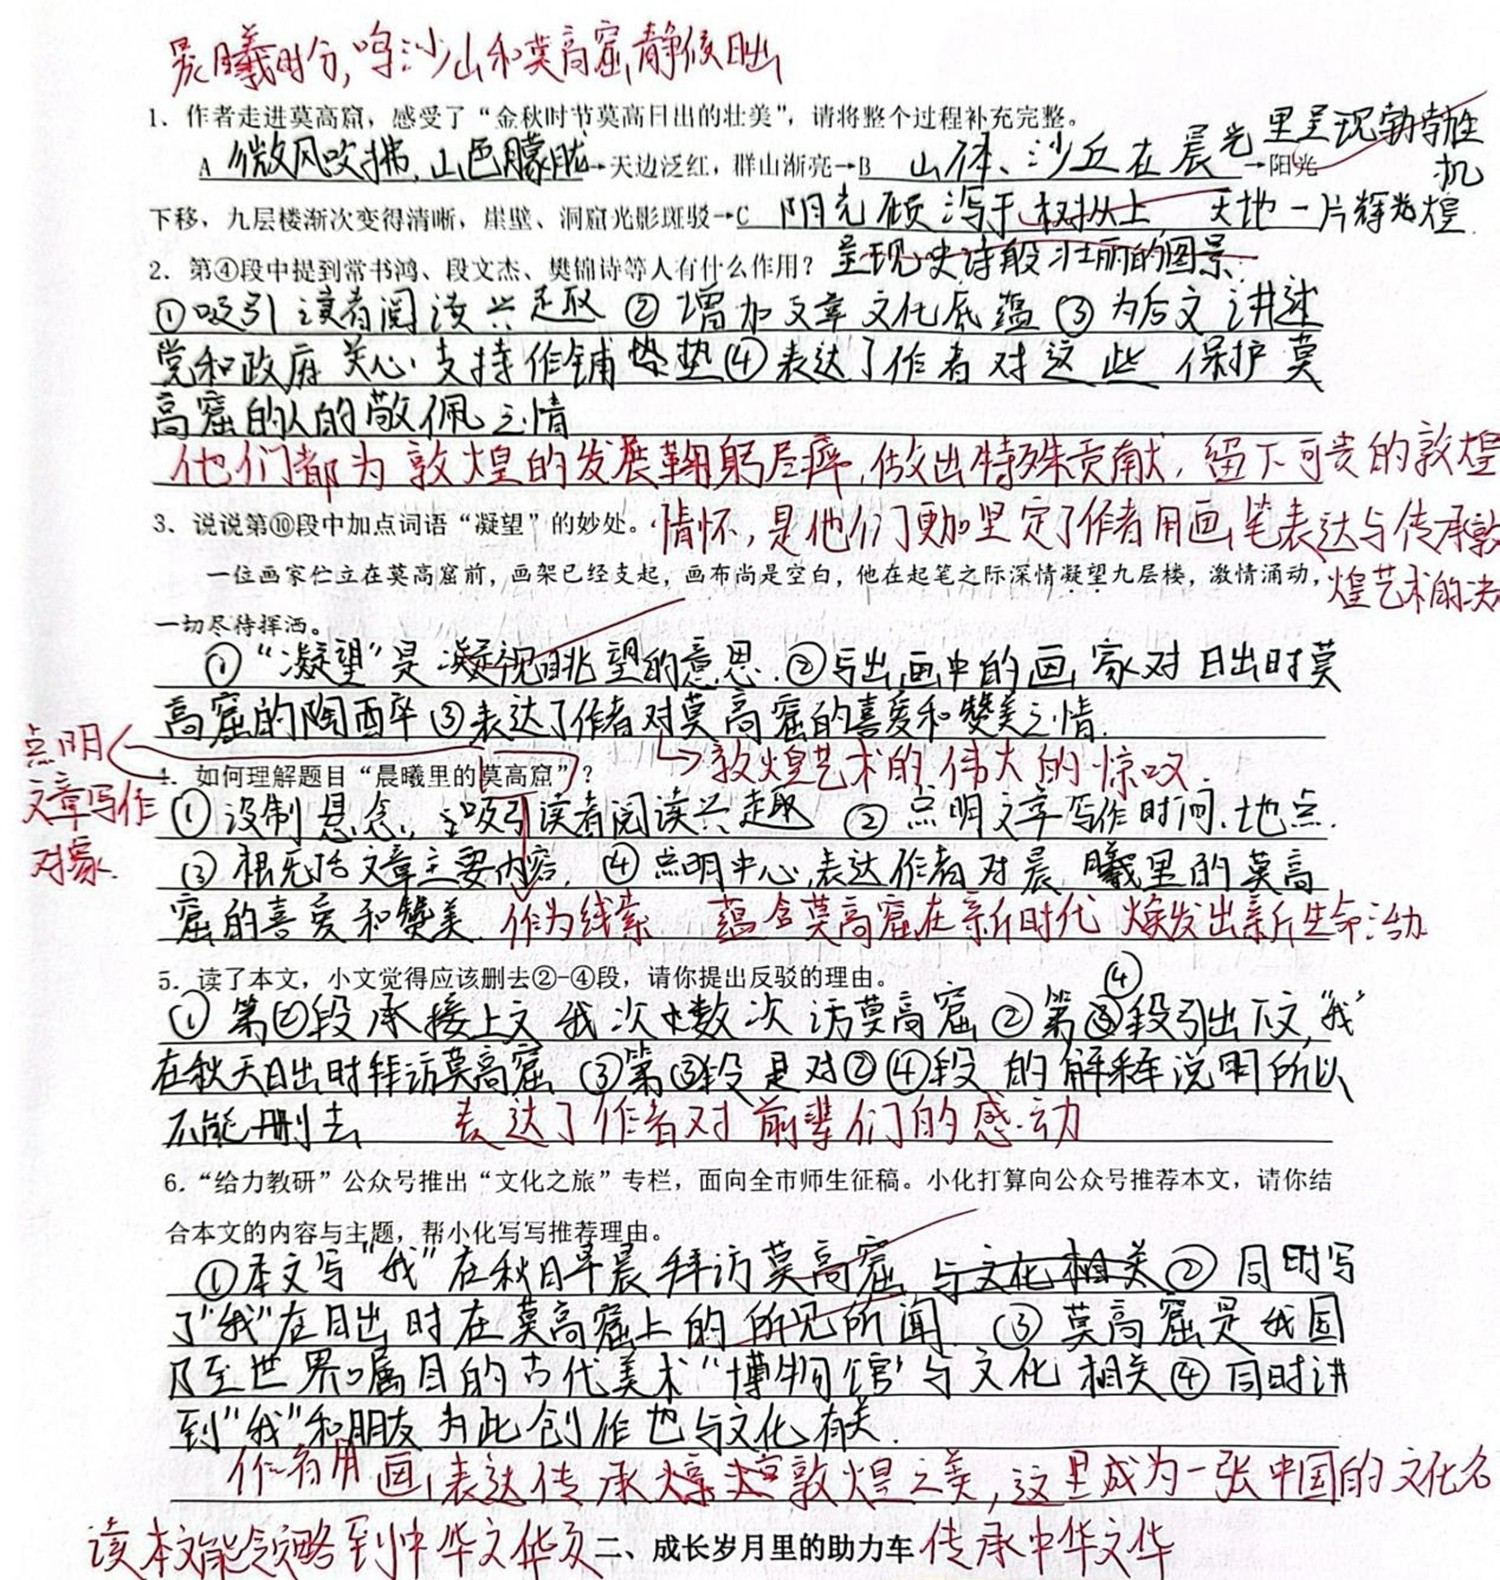 晨曦时分,鸣沙山和莫高窟静候日出
1. 作者走进莫高窟，感受了“金秋时节莫高日出的壮美”，请将整个过程补充完整。
A 微风吹拂,山色朦胧→天边泛红，群山渐亮→B 山体、沙丘在晨光里呈现勃勃生机→阳光
下移，九层楼渐次变得清晰，崖壁、洞窟光影斑驳→C 阳光倾泻于树丛上 天地一片辉煌
呈现史诗般壮丽的图景
2. 第④段中提到常书鸿、段文杰、樊锦诗等人有什么作用?
①吸引读者阅读兴趣 ②增加文章文化底蕴 ③为后文讲述
党和政府关心支持作铺垫④表达了作者对这些保护莫
高窟的人的敬佩之情
他们都为敦煌的发展鞠躬尽瘁,做出特殊贡献,留下可贵的敦煌
3、说说第⑩段中加点词语“凝望”的妙处。
情怀,是他们更加坚定了作者用画笔表达与传承敦
煌艺术的决
一位画家伫立在莫高窟前，画架已经支起，画布尚是空白，他在起笔之际深情凝望九层楼，激情涌动，
一切尽待挥洒。
①“凝望”是凝视眺望的意思.②写出画中的画家对日出时莫
高窟的陶醉③表达了作者对莫高窟的喜爱和赞美之情.
→敦煌艺术的伟大的惊叹
点明
文章写作
对象.
4. 如何理解题目“晨曦里的莫高窟”?
①设制悬念,吸引读者阅读兴趣 ②点明文章写作时间、地点.
③概括文章主要内容. ④点明中心,表达作者对晨曦里的莫高
窟的喜爱和赞美. 作为线索 蕴含莫高窟在新时代焕发出新生命活动
5. 读了本文，小文觉得应该删去②-④段，请你提出反驳的理由。
①第②段承接上文我次数次访莫高窟②第④段引出下文,“我”
在秋天日出时拜访莫高窟 ③第③段是对②④段的解释说明所以
不能删去 表达了作者对前辈们的感动
6. “给力教研”公众号推出“文化之旅”专栏，面向全市师生征稿。小化打算向公众号推荐本文，请你结
合本文的内容与主题，帮小化写写推荐理由。
①本文写“我”在秋日早晨拜访莫高窟 与文化相关②同时写
了“我”在日出时在莫高窟上的所见所闻 ③莫高窟是我国
乃至世界瞩目的古代美术“博物馆”与文化相关④同时讲
到“我”和朋友为此创作也与文化有关.
作者用画表达传承敦煌之美,这里成为一张中国的文化名
读本文能领略到中华文华
二、成长岁月里的助力车
传承中华文华